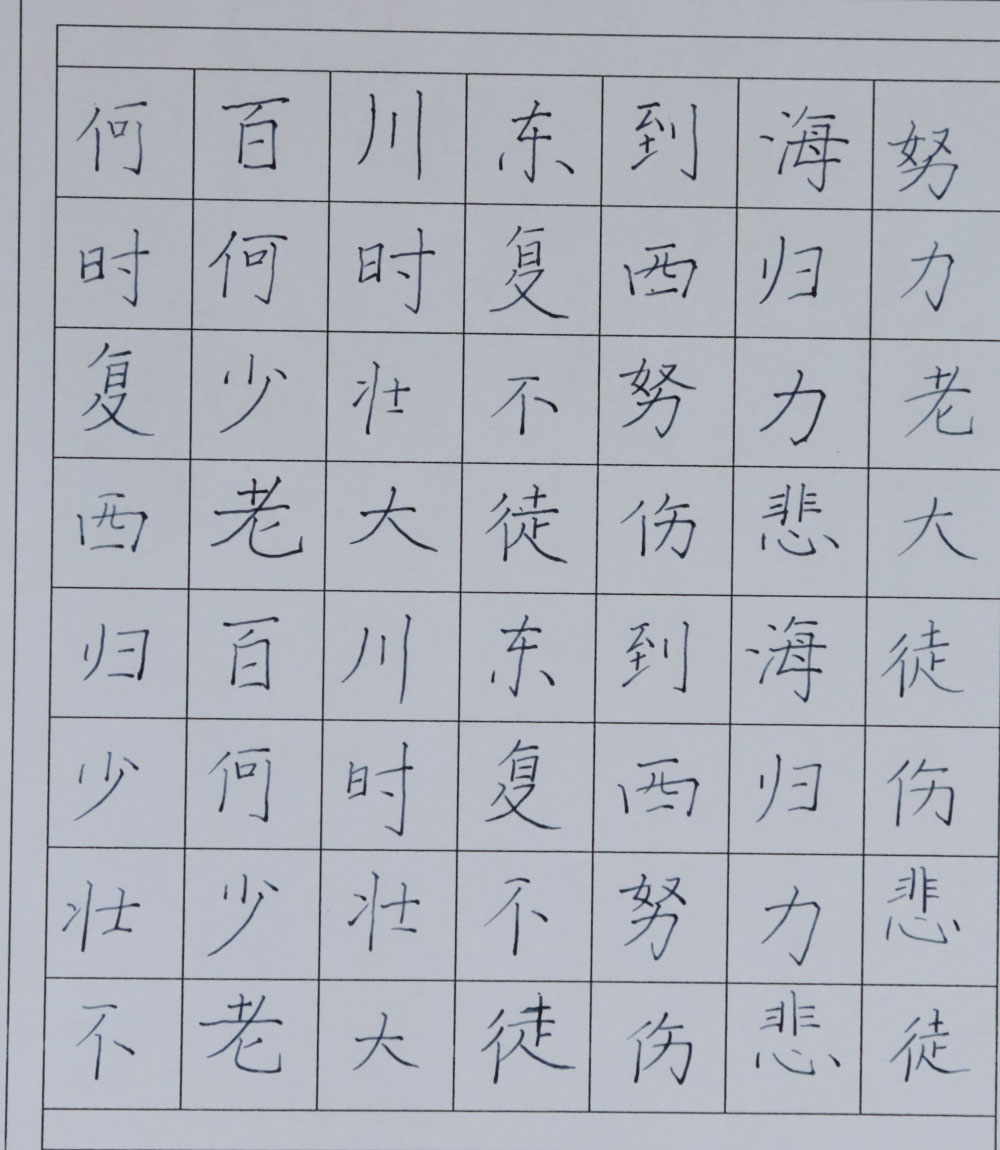 何百川东到海努
时何时复西归力
复少壮不努力老
西老大徒伤悲大
归百川东到海徒
少何时复西归伤
壮少壮不努力悲
不老大徒伤悲徒